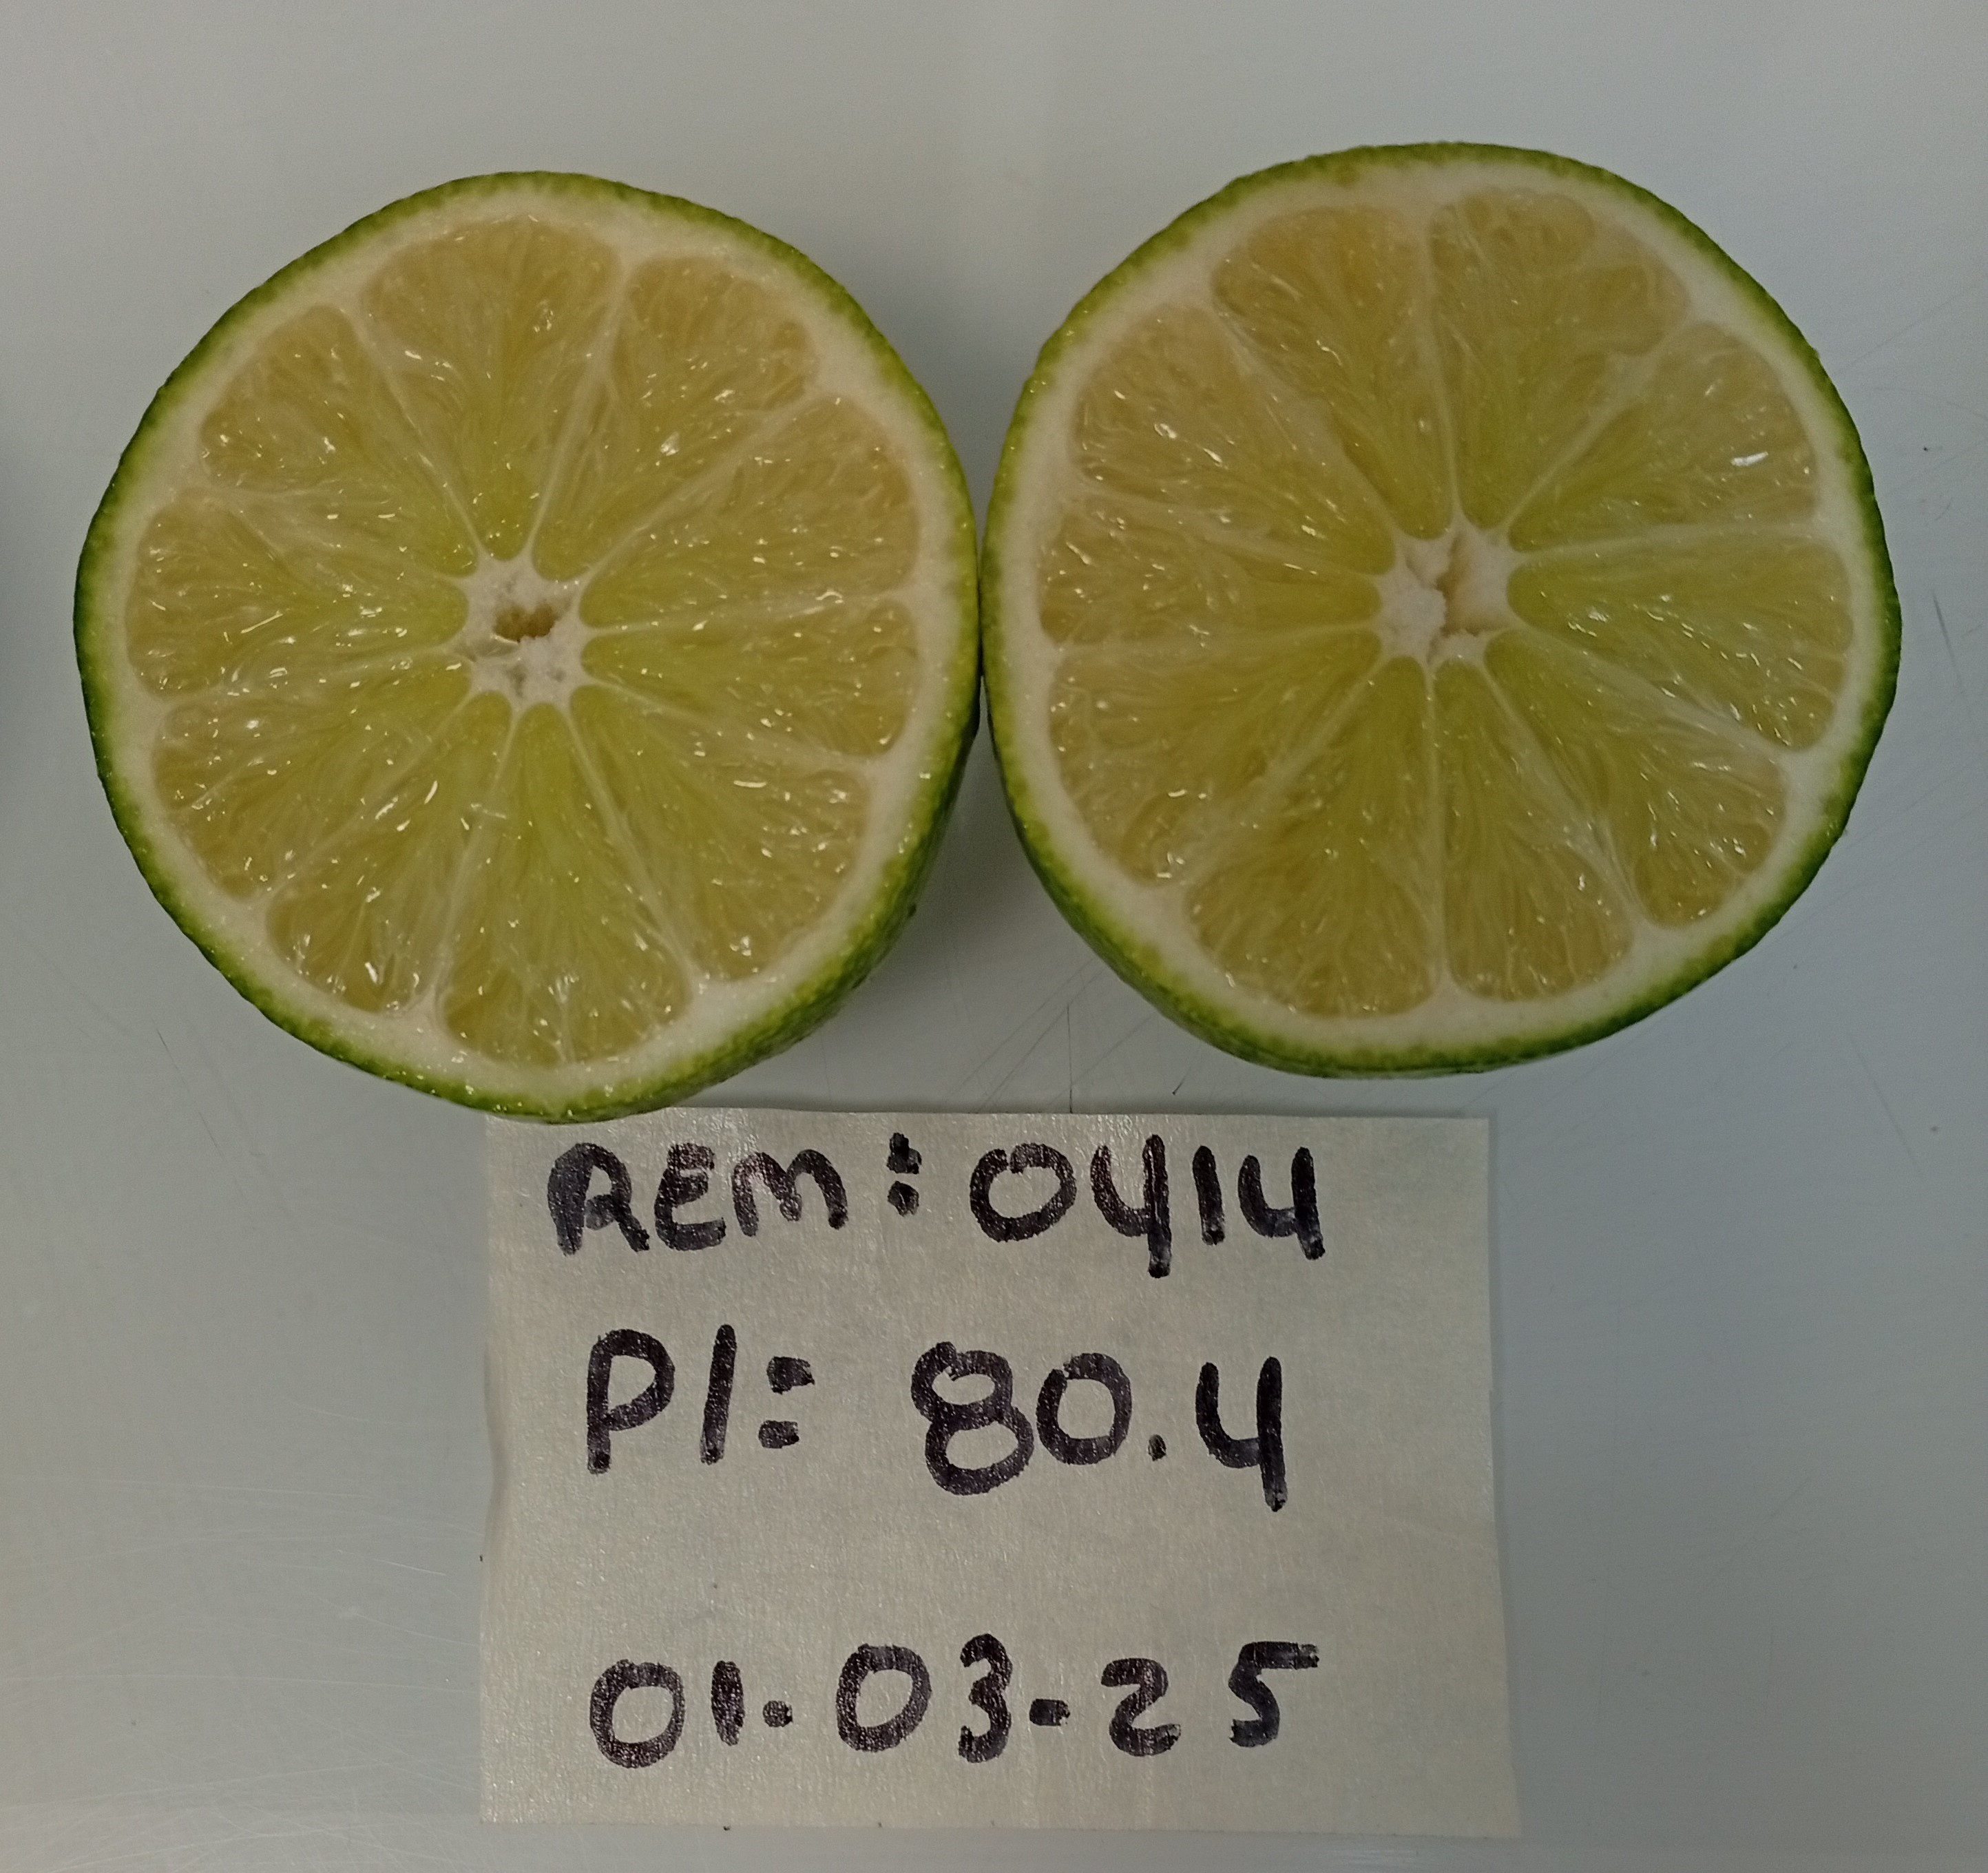 REM: 0414
PI: 80.4
01-03-25